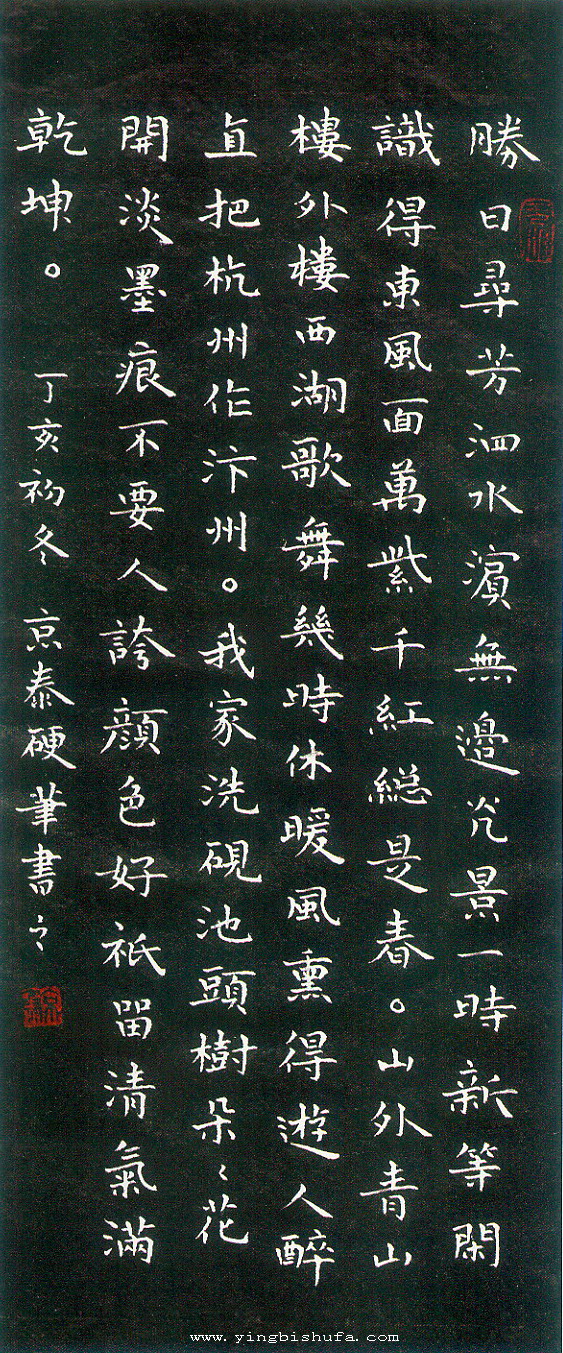 勝日尋芳泗水濱無邊光景一時新等閑
識得東風面萬紫千紅總是春。山外青山
樓外樓西湖歌舞幾時休暖風熏得遊人醉
直把杭州作汴州。我家洗硯池頭樹朵々花
開淡墨痕不要人誇顏色好祇留清氣滿
乾坤。 丁亥初冬 京泰硬筆書之
www.yingbishufa.com